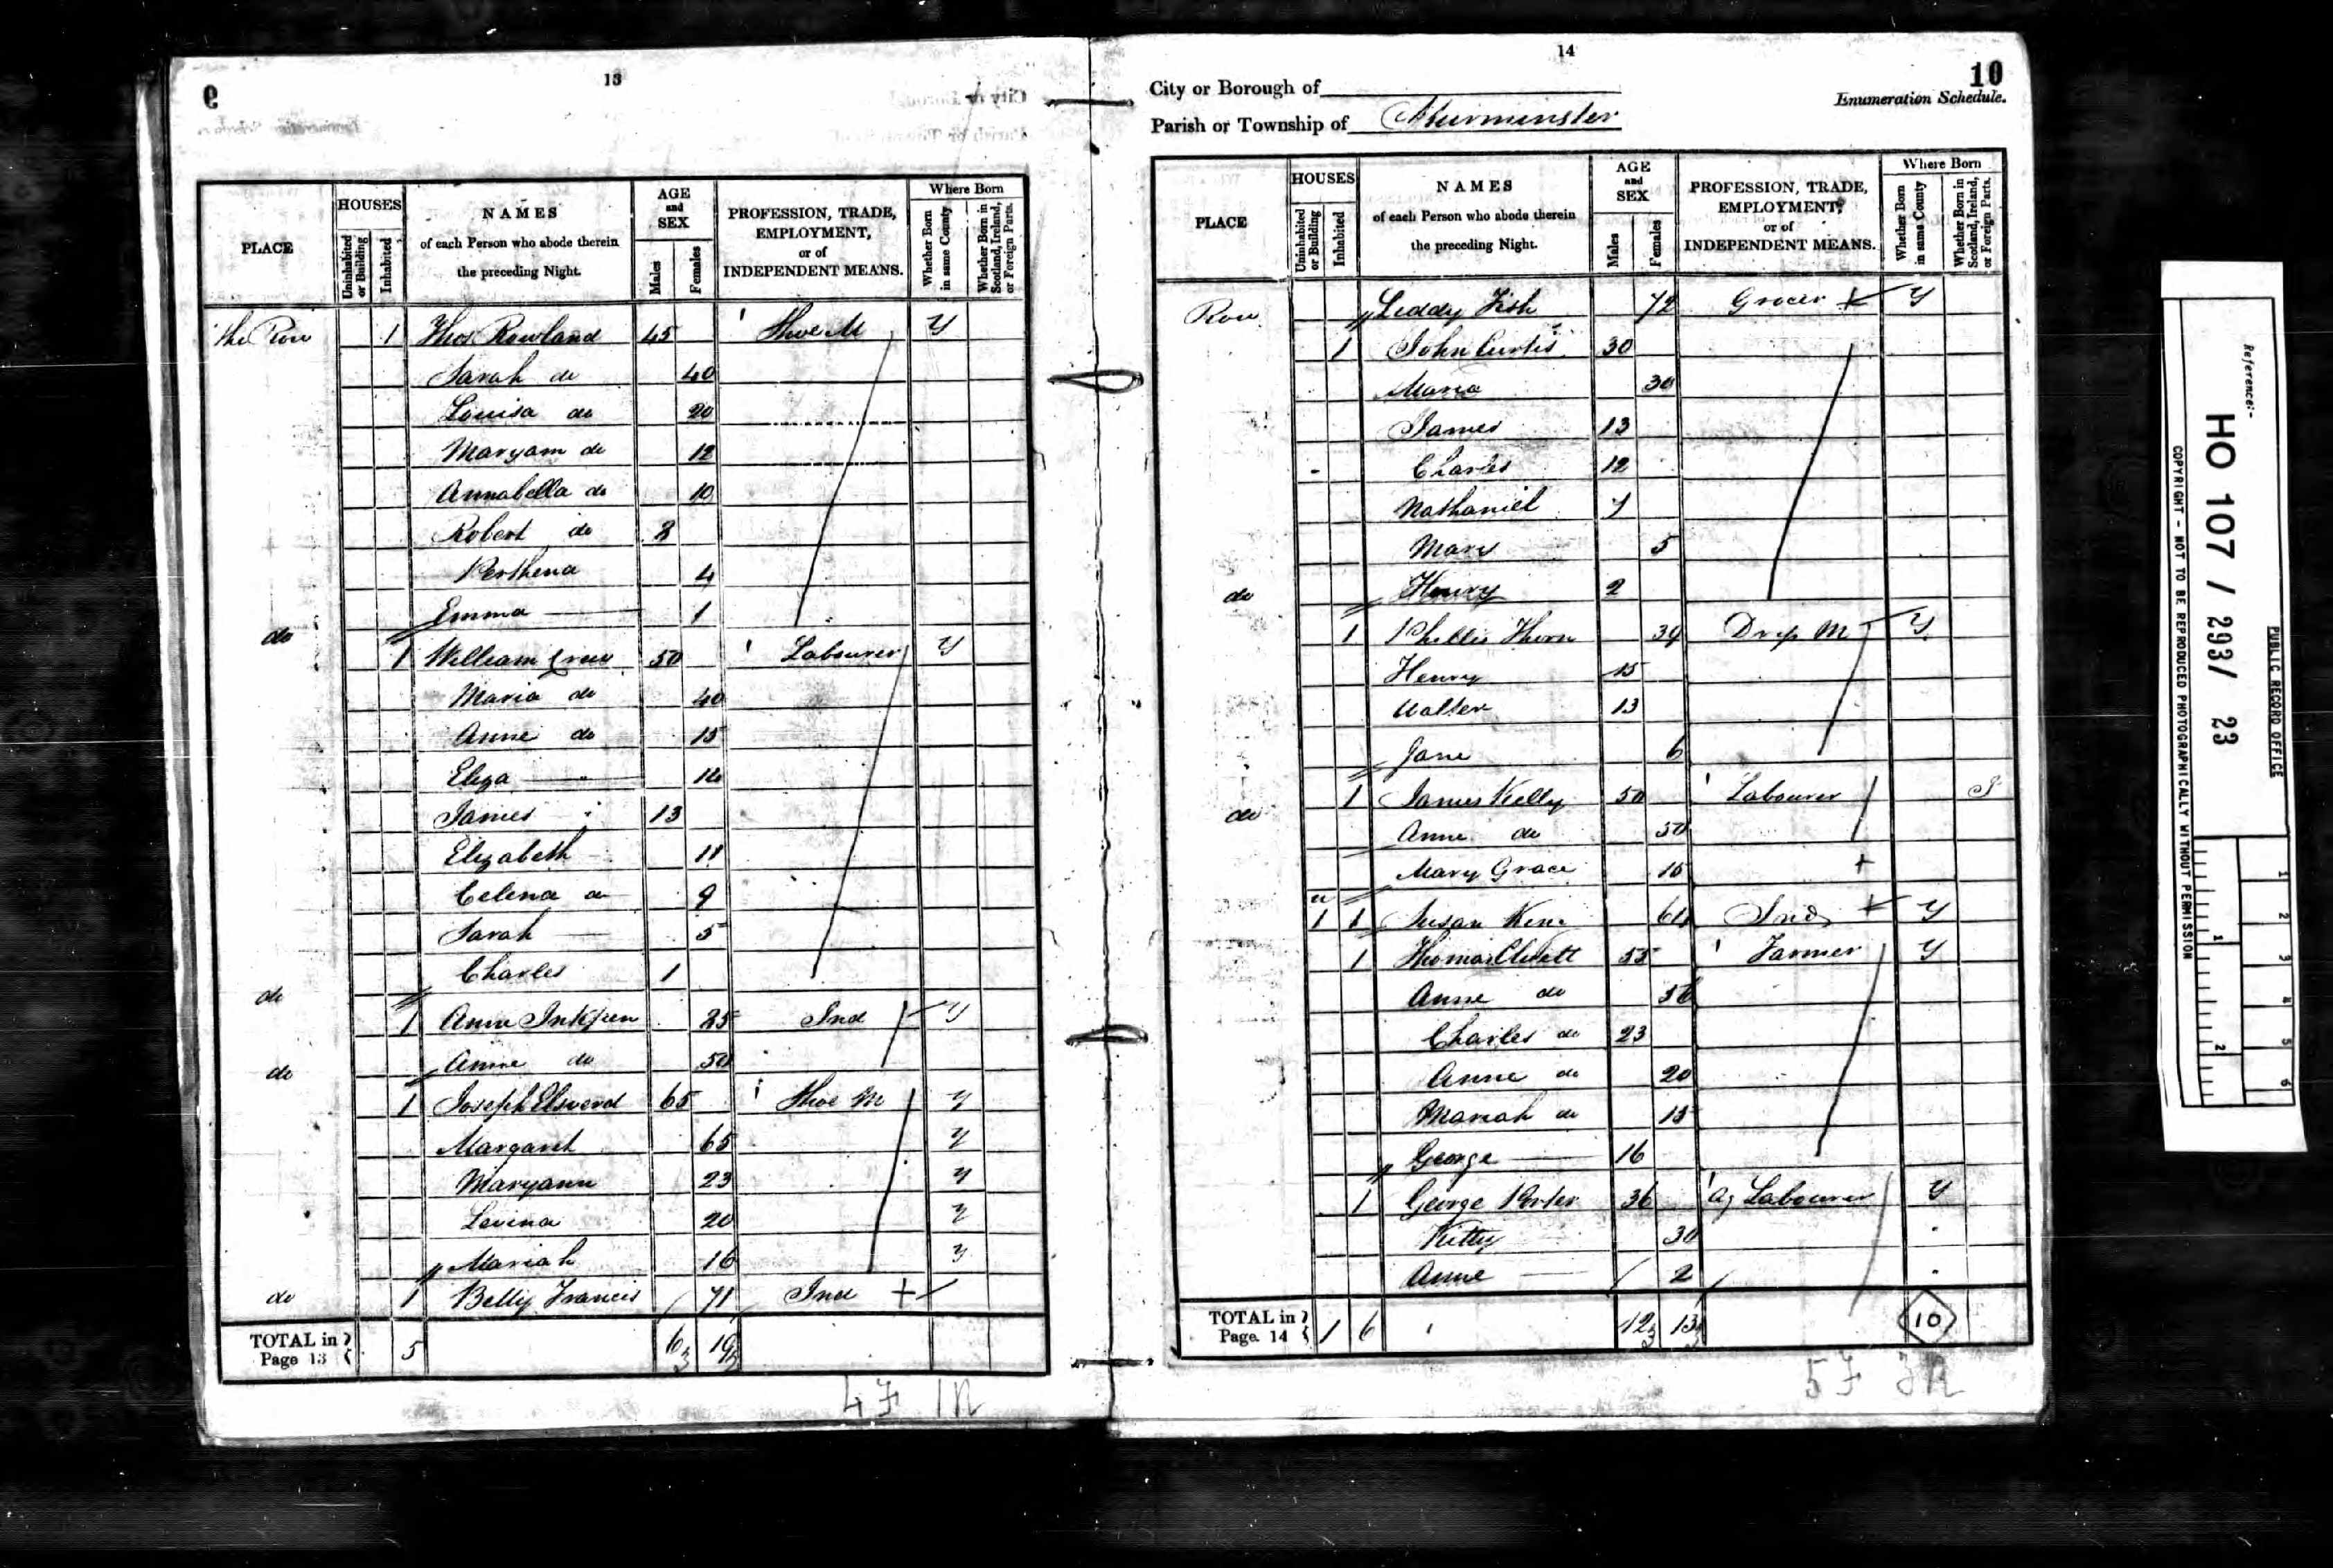 13
PLACE
HOUSES
Uninhabited or Building
Inhabited
NAMES
of each Person who abode therein
the preceding Night.
AGE
and
SEX
Males
Females
PROFESSION, TRADE,
EMPLOYMENT,
or of
INDEPENDENT MEANS.
Where Born
Whether Born in same County
Whether Born in Scotland, Ireland, or Foreign Parts.
the Row 1 Thos Rowland 45 Shoe M Y
Sarah do 40
Louisa do 20
Maryann do 12
Annabella do 10
Robert do 8
4
Emma 1
do 1 William 50 Labourer Y
Maria do 40
Anne do 15
Eliza 14
James 13
Elizabeth 11
Celena do 9
Sarah 5
Charles 1
do 1 Anne 25 Ind Y
Anne do 50
do 1 Joseph 65 Shoe M Y
Margaret 65 Y
Maryann 23 Y
Lavina 20 Y
Mariah 16 Y
do 1 Betty Francis 71 Ind
TOTAL in
Page 13 5 6 19
4F 1R
14
10
City or Borough of
Enumeration Schedule.
Parish or Township of
PLACE
HOUSES
Uninhabited or Building
Inhabited
NAMES
of each Person who abode therein
the preceding Night.
AGE
and
SEX
Males
Females
PROFESSION, TRADE,
EMPLOYMENT,
or of
INDEPENDENT MEANS.
Where Born
Whether Born in same County
Whether Born in Scotland, Ireland, or Foreign Parts.
Row Fish 72 Grocer Y
1 John Curtis 30
Maria 30
James 13
Charles 12
Nathaniel 7
Mary 5
do Henry 2
1 Phillis Thorn 39 Drep M Y
Henry 15
Walter 13
Jane 6
1 James Kelly 50 Labourer
do Anne do 50
Mary Grace 15
1 1 Susan 64 Ind Y
1 Thomas 55 Farmer Y
Anne do
Charles do 23
Anne do 20
Mariah do 15
George 16
1 George Porter 36 Ag Labourer Y
Kitty 30
Anne 2
TOTAL in
Page. 14 1 6 12 13 10
5F
Reference:-
HO 107 / 293 / 23
PUBLIC RECORD OFFICE
COPYRIGHT - NOT TO BE REPRODUCED PHOTOGRAPHICALLY WITHOUT PERMISSION
1 2
1 2 3 4 5 6